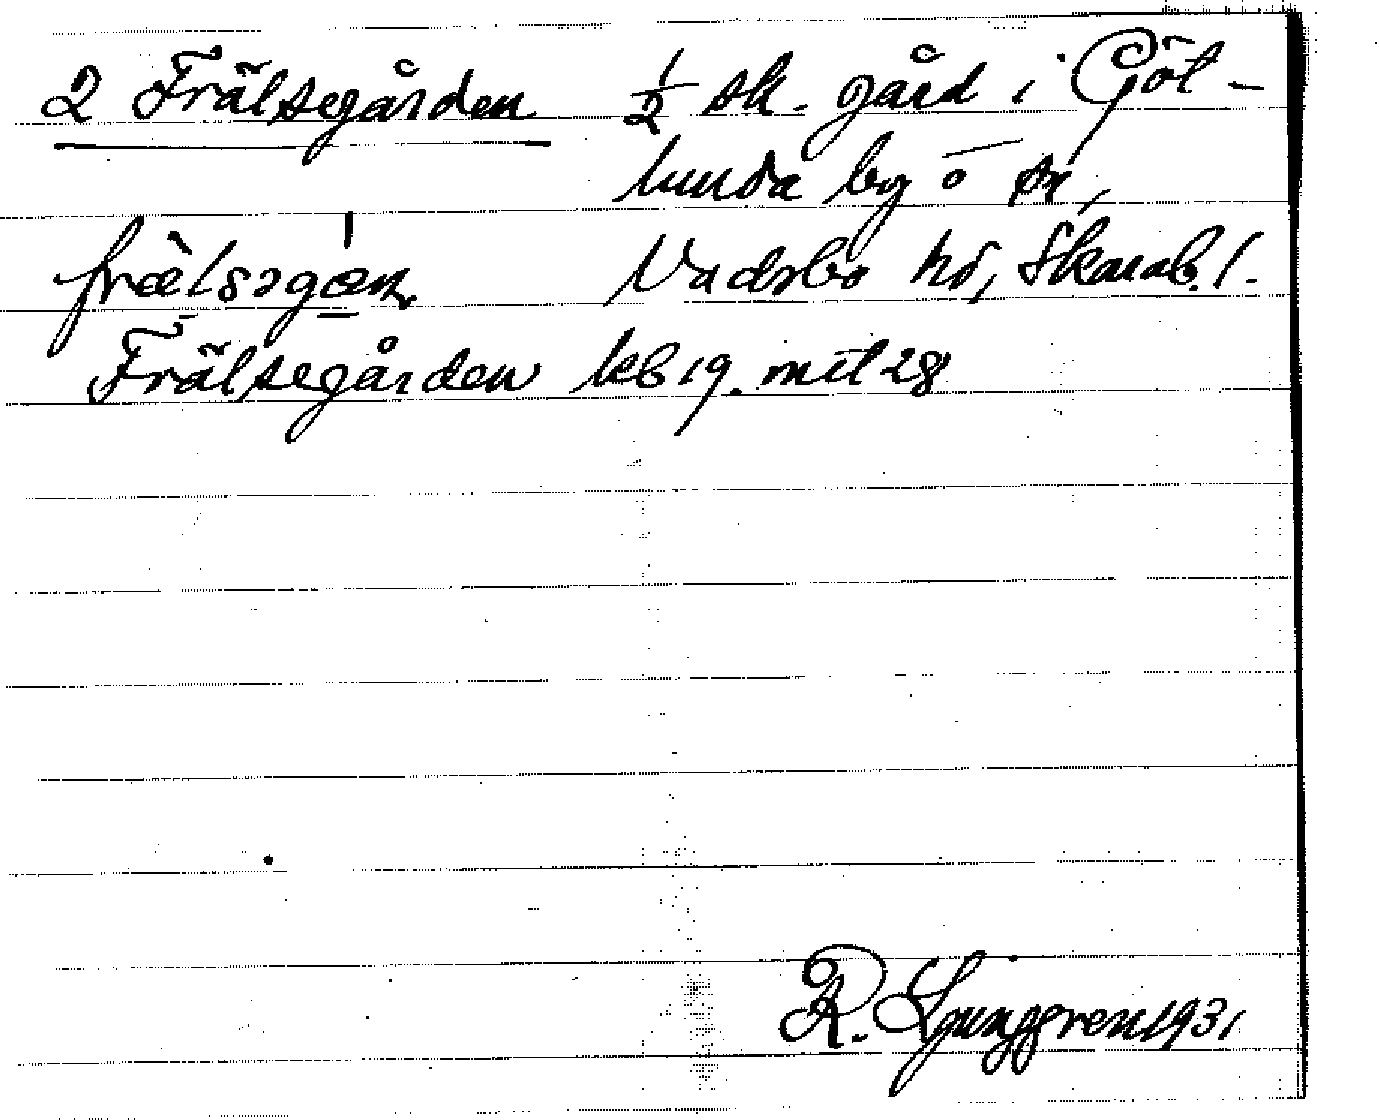 2 Frälsegården ½ sk. gård i Göt-
lunda by o sn,
Vadsbo hd, Skarab. l.
frælsəgən
Frälsegården kb 19. mtl 28
R. Ljunggren 1931